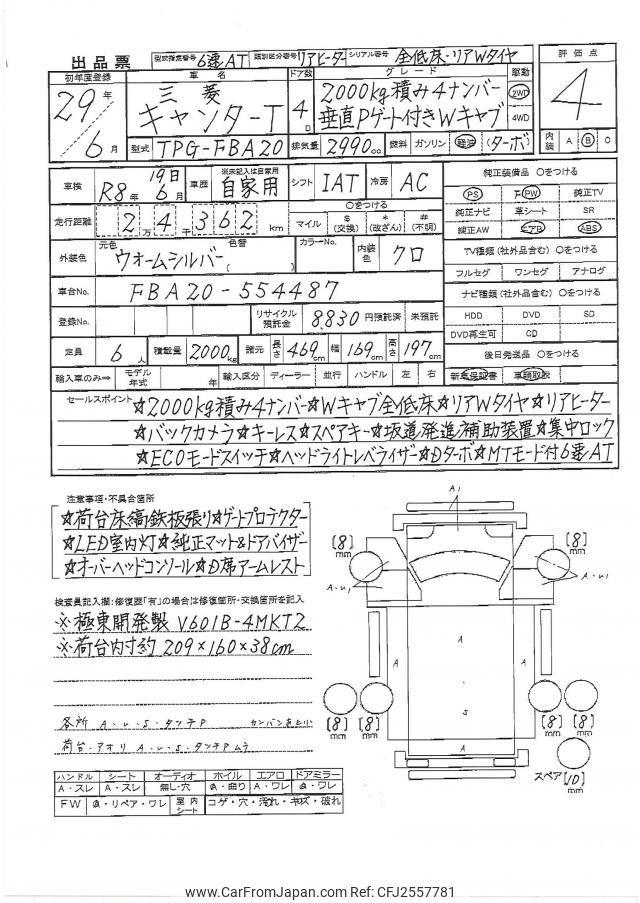 出品票 型式指定番号 6速AT 類別区分番号 リアヒーター シリアル番号 全低床・リアWタイヤ 評価点
初年度登録 車名 ドア数 グレード 駆動 4
29年 三菱 2000kg積み4ナンバー 2WD
キャンターT 4D 垂直Pゲート付きWキャブ 4WD
6月 型式 TPG-FBA20 排気量 2990cc 燃料 ガソリン 軽油 (ターボ) 内装 A B C
車検 R8年 19日 6月 車歴 ※未記入は自家用 自家用 シフト IAT 冷房 AC 純正装備品 〇をつける
PS PW 純正TV
走行距離 24千362km 〇をつける
2万4千362km マイル $(交換) *(改ざん) #(不明) 純正ナビ 革シート SR
純正AW エアB ABS
外装色 元色 ウォームシルバー 色替 ( ) カラーNo. 内装色 クロ TV種類(社外品含む) 〇をつける
フルセグ ワンセグ アナログ
車台No. FBA20-554487 ナビ種類(社外品含む) 〇をつける
登録No. リサイクル預託金 8,830 円預託済 未預託 HDD DVD SD
DVD再生可 CD
定員 6人 積載量 2000kg 諸元 長さ 469cm 幅 169cm 高さ 197cm 後日発送品 〇をつける
輸入車のみ⇒ モデル年式 年 輸入区分 ディーラー 並行 ハンドル 左 右 新車保証書 車輌取説
セールスポイント ☆2000kg積み4ナンバー☆Wキャブ全低床☆リアWタイヤ☆リアヒーター
☆バックカメラ☆キーレス☆スペアキー☆坂道発進補助装置☆集中ロック
☆ECOモードスイッチ☆ヘッドライトレベライザー☆Dターボ☆MTモード付6速AT
注意事項・不具合箇所
☆荷台床縞鉄板張り☆ゲートプロテクター
☆LED室内灯☆純正マット&ドアバイザー
☆オーバーヘッドコンソール☆D席アームレスト
検査員記入欄:修復歴「有」の場合は修復箇所・交換箇所を記入
※極東開発製 V601B-4MKT2
※荷台内寸約209×160×38cm
各所 A・U・S・タッチP カンバンあとり
荷台・アオリ A・U・S・タッチPムラ
A1
[8]mm [8]mm
A・U1 A・U1
A
A A
S
A
[8]mm [8]mm [8]mm [8]mm
スペア [10]mm
ハンドル シート オーディオ ホイル エアロ ドアミラー
A・スレ A・スレ 無し・穴 A・曲り A・ワレ A・ワレ
FW A・リペア・ワレ 室内シート コゲ・穴・汚れ・キズ・破れ
www.CarFromJapan.com Ref: CFJ2557781